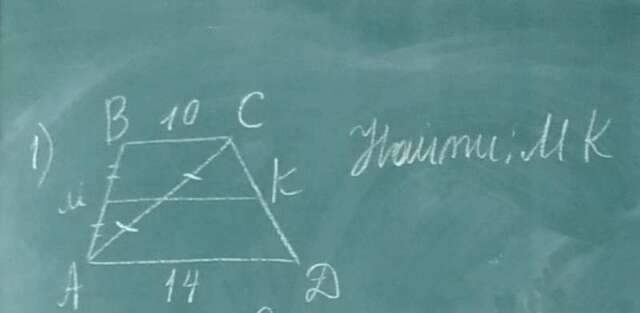 1) B 10 C
Найти: MK
M K
A 14 D